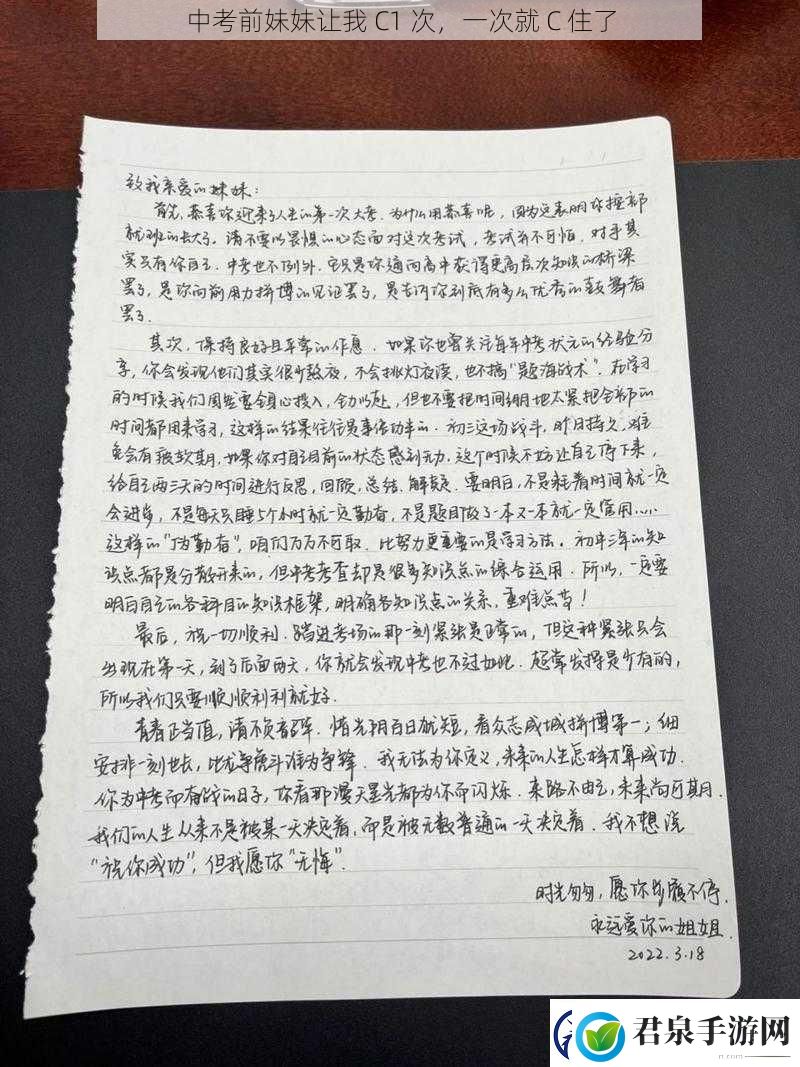 中考前妹妹让我 C1 次，一次就 C 住了
致我亲爱的妹妹：
首先，恭喜你迎来了人生的第一次大考。为什么用恭喜呢，因为这表明你按部
就班的长大了。请不要以畏惧的心态面对这次考试，考试并不可怕，对手其
实只有你自己。中考也不例外，它只是你通向高中获得更高层次知识的桥梁
罢了，是你向前用力拼博的见证罢了，是告诉你到底有多么优秀的鼓舞者
罢了。
其次，保持良好且平常的作息。如果你也曾关注每年中考状元的经验分
享，你会发现他们其实很少熬夜，不会挑灯夜读，也不搞“题海战术”。在学习
的时候我们固然要全身心投入，全力以赴，但也不要把时间绷地太紧把全部的
时间都用来学习，这样的结果往往是事倍功半的。初三这场战斗，时日持久，难
免会有疲软期，如果你对自己目前的状态感到无力，这个时候不妨让自己停下来，
给自己两三天的时间进行反思，回顾，总结，解疑。要明白，不是耗着时间就一定
会进步，不是每天只睡5个小时就一定勤奋，不是题目做了一本又一本就一定管用……
这样的“伪勤奋”，咱们万万不可取。比努力更重要的是学习方法。初中三年的知
识点都是分散开来的，但中考考查却是很多知识点的综合运用。所以，一定要
明白自己的各科目的知识框架，明确各知识点的关系，重难点等！
最后，祝一切顺利。踏进考场的那一刻紧张是正常的，但这种紧张只会
出现在第一天，到了后面两天，你就会发现中考也不过如此。超常发挥是少有的，
所以我们只要顺顺利利就好。
青春正当值，请不负韶华。惜光阴百日犹短，看众志成城拼博第一；细
安排一刻也长，比龙争虎斗谁为争锋。我无法为你定义，未来的人生怎样才算成功。
你为中考而奋战的日子，你看那漫天星光都为你而闪烁。来路不由己，未来尚可其月。
我们的人生从来不是被某一天决定着，而是被无数普通的一天决定着。我不想说
“祝你成功”，但我愿你“无悔”.
时光匆匆，愿你步履不停.
永远爱你的姐姐.
2022.3.18
君泉手游网